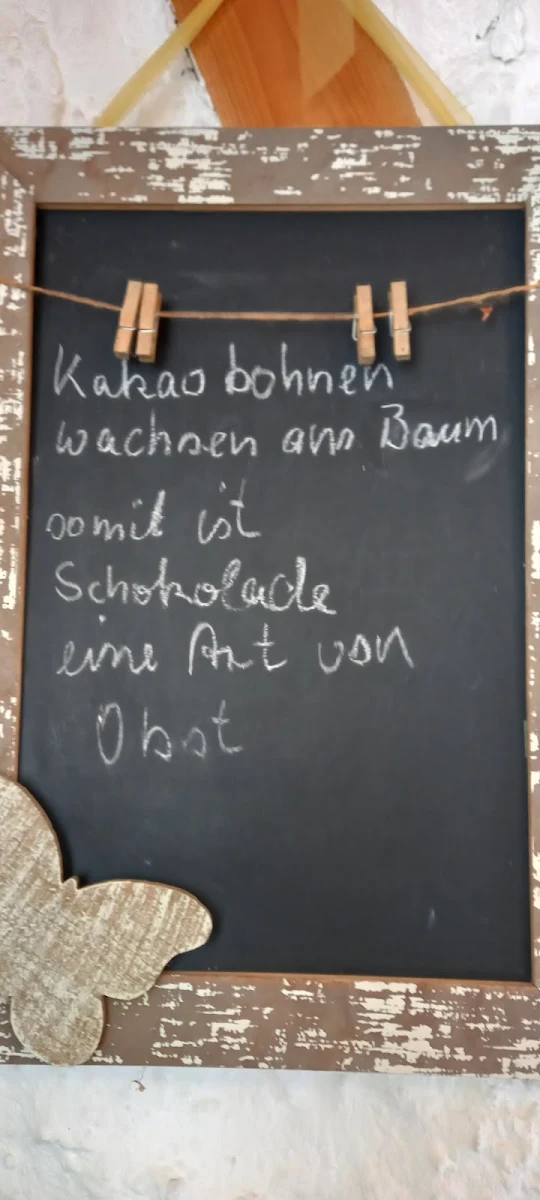 Kakao bohnen
wachsen am Baum
somit ist
Schokolade
eine Art von
Obst